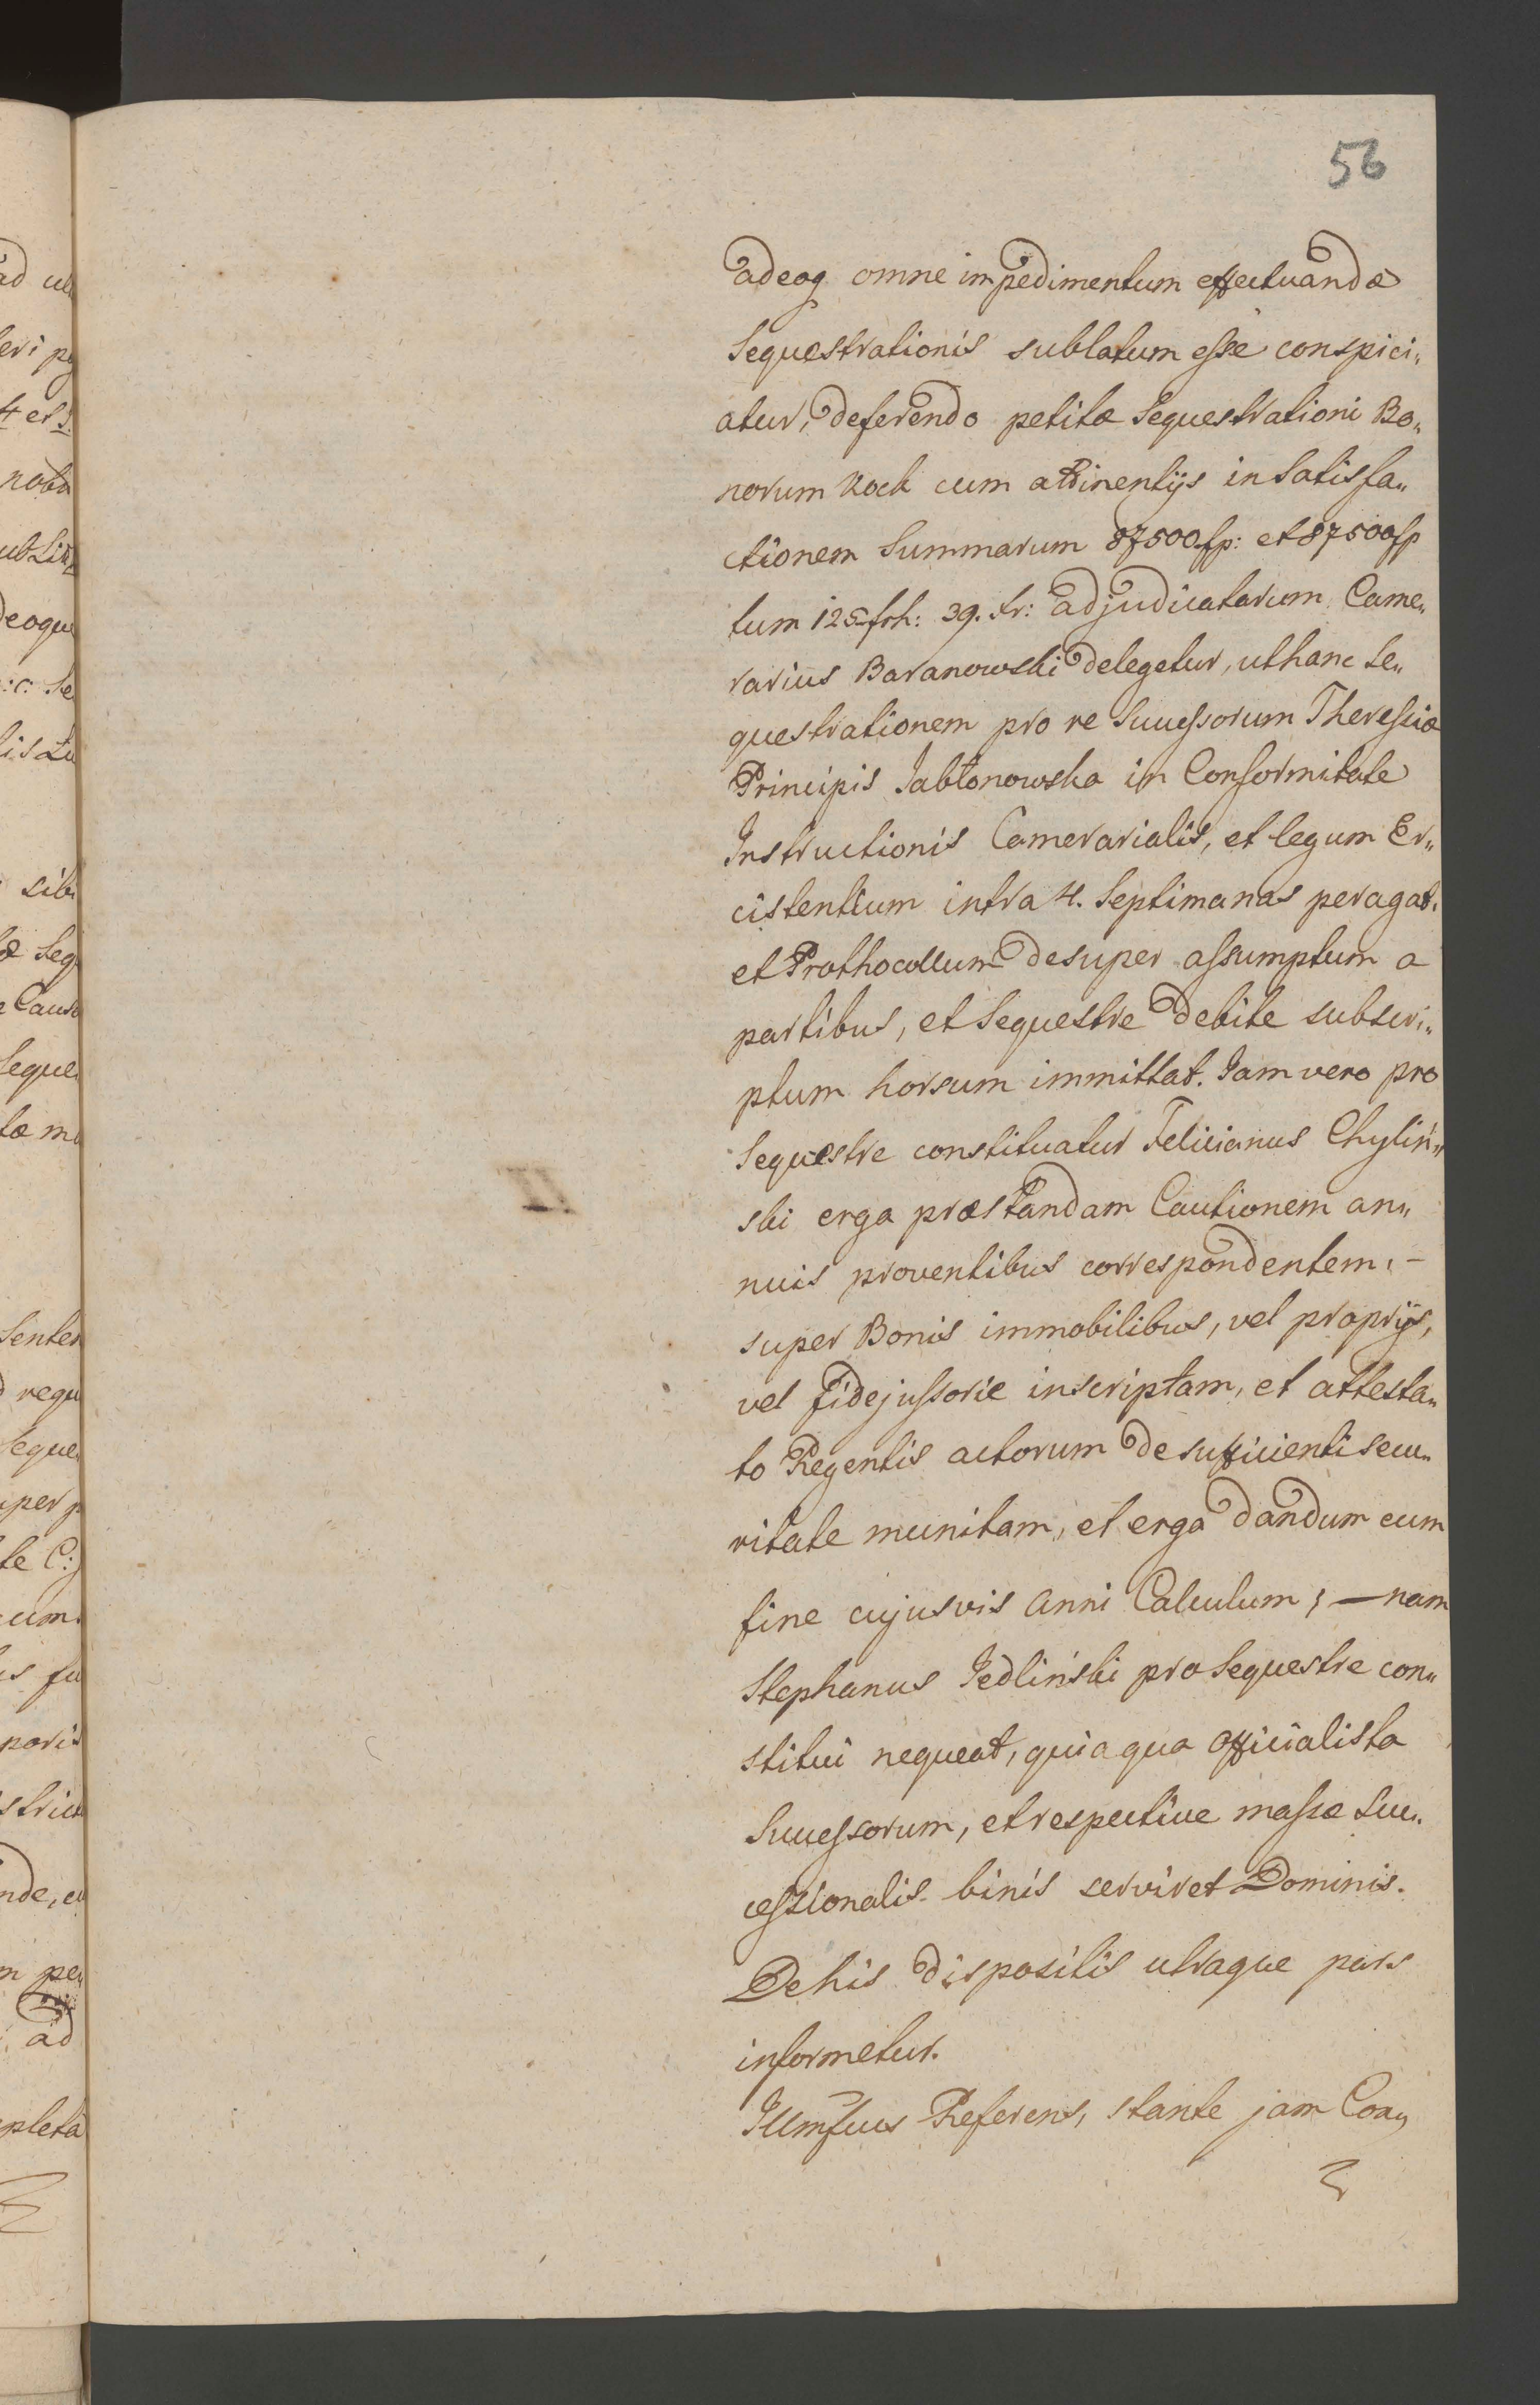 56
adeoq omne impedimentum effectuandæ
Sequestrationis sublatum esse conspici„
atur, deferendo petitæ Sequestrationi Bo„
norum Kock cum attinentijs in Satisfa„
ctionem Summarum 87500 fp: et 87500 fp
tum 125 frh: 39. Xr: adjudicatarum Came„
rarius Baranowski delegetur, ut hanc Se„
questrationem pro re Successorum Theressiæ
Principis Jabłonowska in Conformitate
Instructionis Camerarialis, et legum Ex„
cistentium intra 4. Septimanas peragat.
et Prothocollum desuper assumptum a
partibus, et Sequestre debite subscri„
ptum horsum immittat. Jam vero pro
Sequestre constituatur Felicianus Chyliń„
ski erga præstandam Cautionem an„
nuis proventibus correspondentem, –
super Bonis immobilibus, vel proprijs,
vel fidejussorie inscriptam, et attesta„
to Regentis actorum de sufficienti secu„
ritate munitam, et erga dandum cum
fine cujusvis anni Calculum; — nam
Stephanus Jedliński pro Sequestre con„
stitui nequeat, quia qua officialista
Successorum, et respective massæ Suc„
cessionalis binis serviret Dominis.
De his dispositis utraque pars
informetur.
Illmsſuus Referens, stante jam Coaq
ad ul
eri pq
4 et 5
nota
ub Lit
deoque
:c: Se
sibi
æ Seq
e Causa
Seque
Senten
requ
Seque
uper p
te C:
cum
is fu
poris
strict
nde, eu
m per
ad
pleta